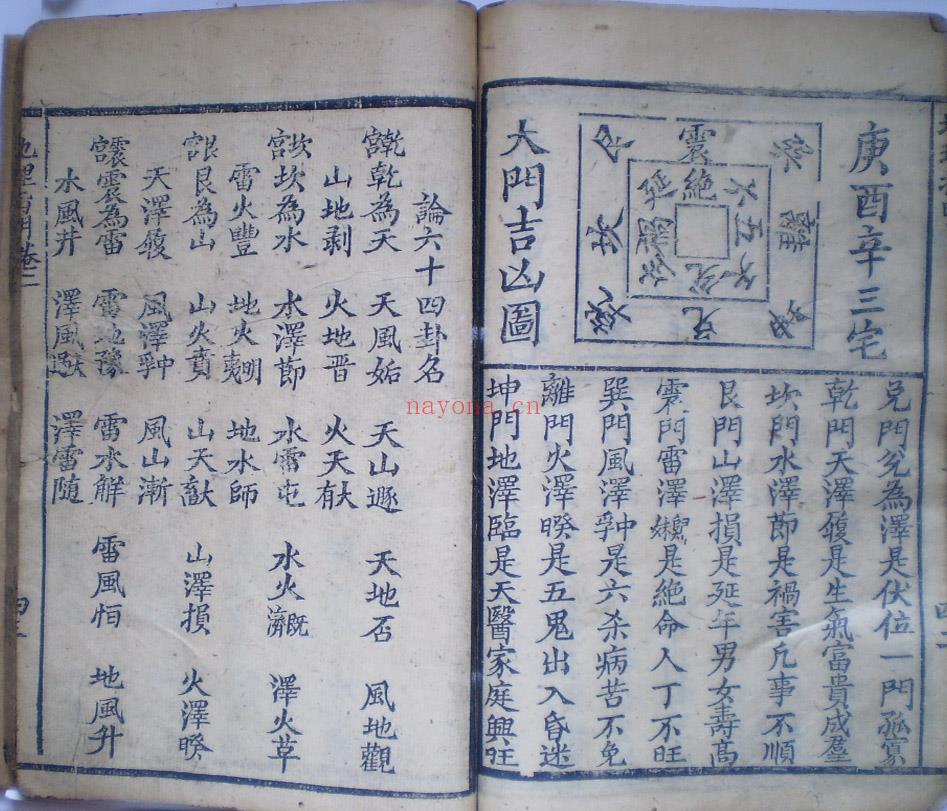 庚酉辛三宅
大門吉凶圖
震
絶
六
五
離
兑
兌門兌為澤是伏位一門孤寡
乾門天澤履是生氣富貴成羣
坎門水澤節是禍害凡事不順
艮門山澤損是延年男女壽高
震門雷澤歸妹是絶命人丁不旺
巽門風澤中孚是六杀病苦不免
離門火澤睽是五鬼出入昏迷
坤門地澤臨是天醫家庭興旺
論六十四卦名
乾宮 乾為天 天風姤 天山遯 天地否 風地觀
山地剥 火地晋 火天大有
坎宮 坎為水 水澤節 水雷屯 水火既濟 澤火革
雷火豐 地火明夷 地水師
艮宮 艮為山 山火賁 山天大畜 山澤損 火澤睽
天澤履 風澤中孚 風山漸
震宮 震為雷 雷地豫 雷水解 雷風恒 地風升
水風井 澤風大過 澤雷随
卷二
nayona.cn